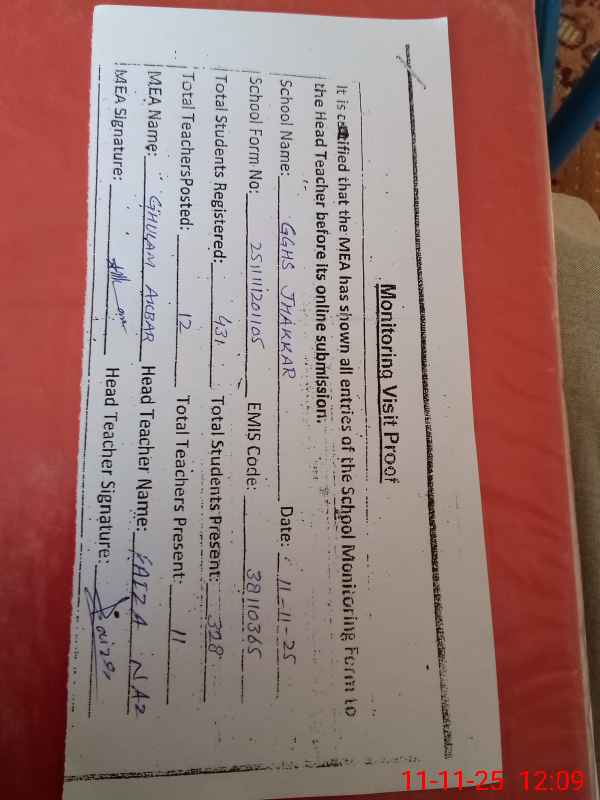 Monitoring Visit Proof
It is certified that the MEA has shown all entries of the School Monitoring Form to
the Head Teacher before its online submission.
School Name: GGHS JHAKKAR Date: 11-11-25
School Form No: 251111201105 EMIS Code: 38110365
Total Students Registered: 431 Total Students Present: 328
Total TeachersPosted: 12 Total Teachers Present: 11
MEA Name: GHULAM AKBAR Head Teacher Name: FAIZA NAZ
MEA Signature: Head Teacher Signature:
11-11-25 12:09